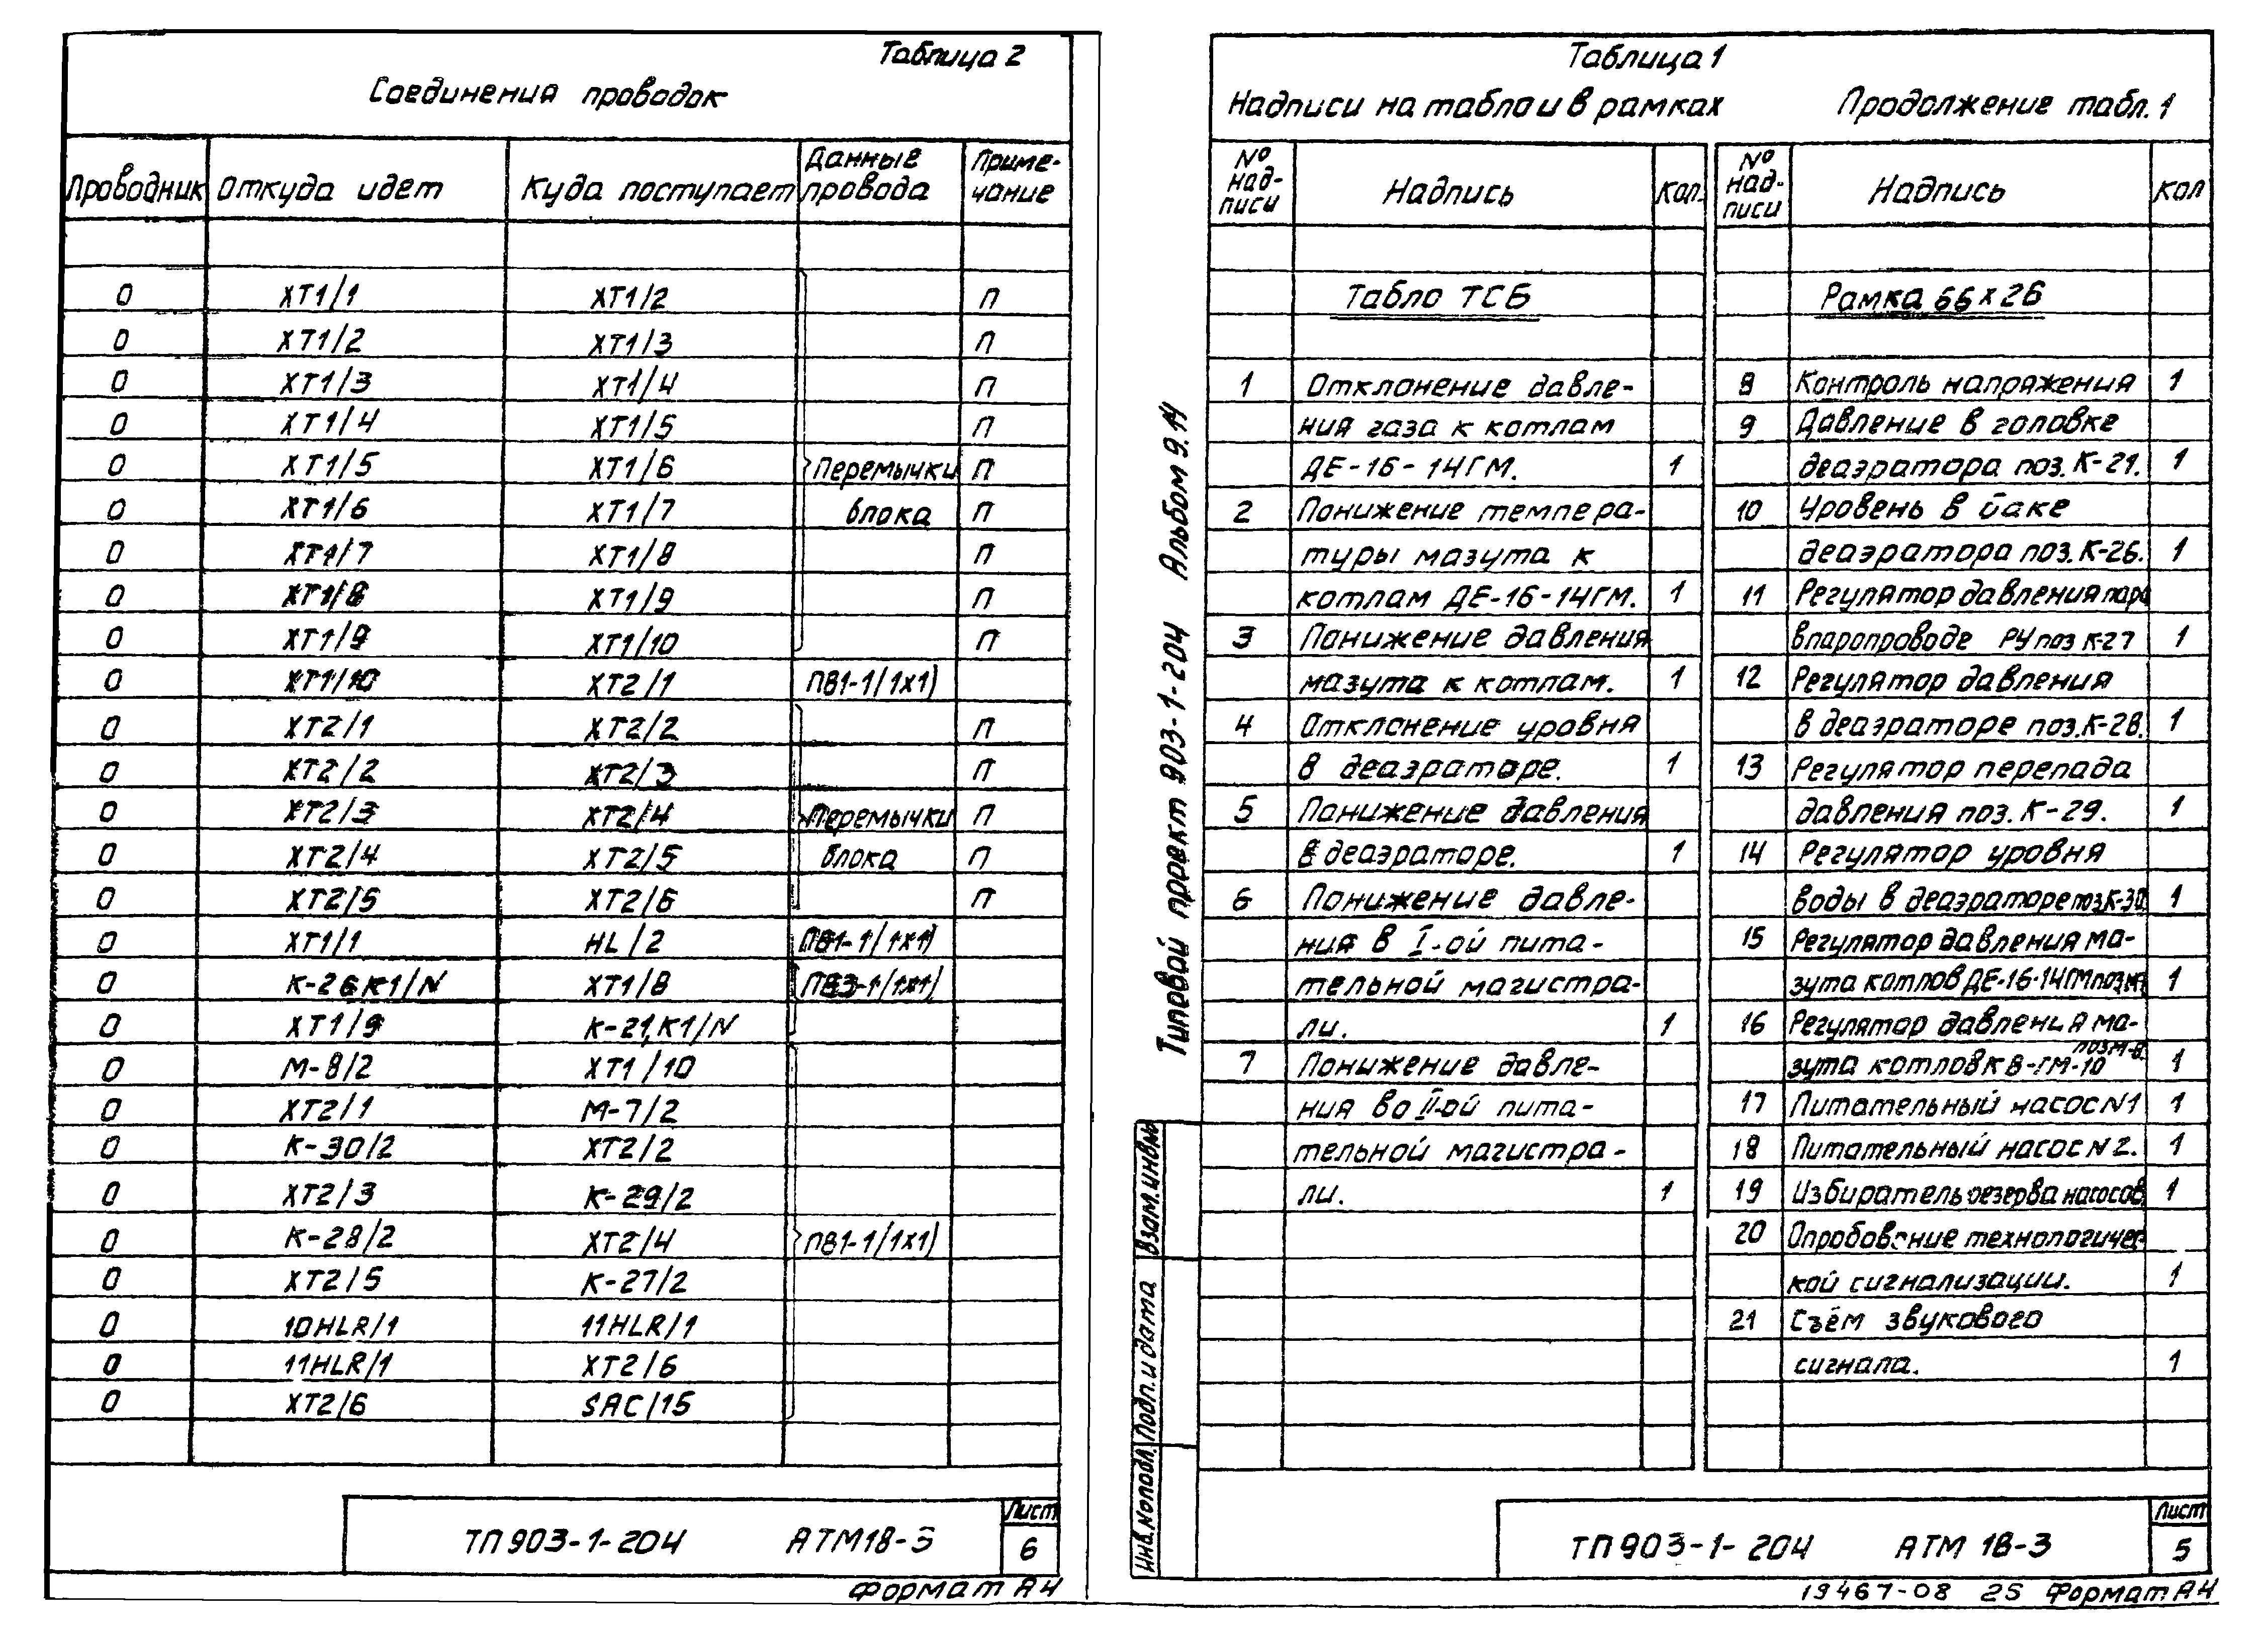 Таблица 2
Соединения проводок
Проводник Откуда идет Куда поступает Данные провода Приме-чание
0 ХТ1/1 ХТ1/2 П
0 ХТ1/2 ХТ1/3 П
0 ХТ1/3 ХТ1/4 П
0 ХТ1/4 ХТ1/5 П
0 ХТ1/5 ХТ1/6 Перемычки П
0 ХТ1/6 ХТ1/7 блока П
0 ХТ1/7 ХТ1/8 П
0 ХТ1/8 ХТ1/9 П
0 ХТ1/9 ХТ1/10 П
0 ХТ1/10 ХТ2/1 ПВ1-1/1х1)
0 ХТ2/1 ХТ2/2 П
0 ХТ2/2 ХТ2/3 П
0 ХТ2/3 ХТ2/4 Перемычки П
0 ХТ2/4 ХТ2/5 блока П
0 ХТ2/5 ХТ2/6 П
0 ХТ1/1 HL/2 ПВ1-1/1х1)
0 К-26К1/N ХТ1/8 ПВ3-1/1х1)
0 ХТ1/9 К-21,К1/N
0 М-8/2 ХТ1/10
0 ХТ2/1 М-7/2
0 К-30/2 ХТ2/2
0 ХТ2/3 К-29/2
0 К-28/2 ХТ2/4 ПВ1-1/1х1)
0 ХТ2/5 К-27/2
0 10HLR/1 11HLR/1
0 11HLR/1 ХТ2/6
0 ХТ2/6 SAC/15
ТП903-1-204 АТМ18-3
Лист
6
Формат А4
Типовой проект 903-1-204 Альбом 9.14
Взам.инв№
Подп.и дата
Инв.№подл.
Таблица 1
Надписи на табло и в рамках
Продолжение табл.1
№ над-писи Надпись Кол.
Табло ТСБ
1 Отклонение давле-
ния газа к котлам
ДЕ-16-14ГМ. 1
2 Понижение темпера-
туры мазута к
котлам ДЕ-16-14ГМ. 1
3 Понижение давления
мазута к котлам. 1
4 Отклонение уровня
в деаэраторе. 1
5 Понижение давления
в деаэраторе. 1
6 Понижение давле-
ния в I-ой пита-
тельной магистра-
ли. 1
7 Понижение давле-
ния во II-ой пита-
тельной магистра-
ли. 1
№ над-писи Надпись Кол
Рамка 66х26
8 Контроль напряжения 1
9 Давление в головке
деаэратора поз.К-21. 1
10 Уровень в баке
деаэратора поз.К-26. 1
11 Регулятор давления пара
в паропроводе РУ поз К-27 1
12 Регулятор давления
в деаэраторе поз.К-28. 1
13 Регулятор перепада
давления поз.К-29. 1
14 Регулятор уровня
воды в деаэраторе поз.К-30 1
15 Регулятор давления ма-
зута котлов ДЕ-16-14ГМ 1
16 Регулятор давления ма-
зута котлов КВ-ГМ-10 поз М-8. 1
17 Питательный насос N1 1
18 Питательный насос N2. 1
19 Избиратель резерва насосов 1
20 Опробование технологичес-
кой сигнализации. 1
21 Съём звукового
сигнала. 1
ТП903-1-204 АТМ 18-3
Лист
5
19467-08 25 Формат А4